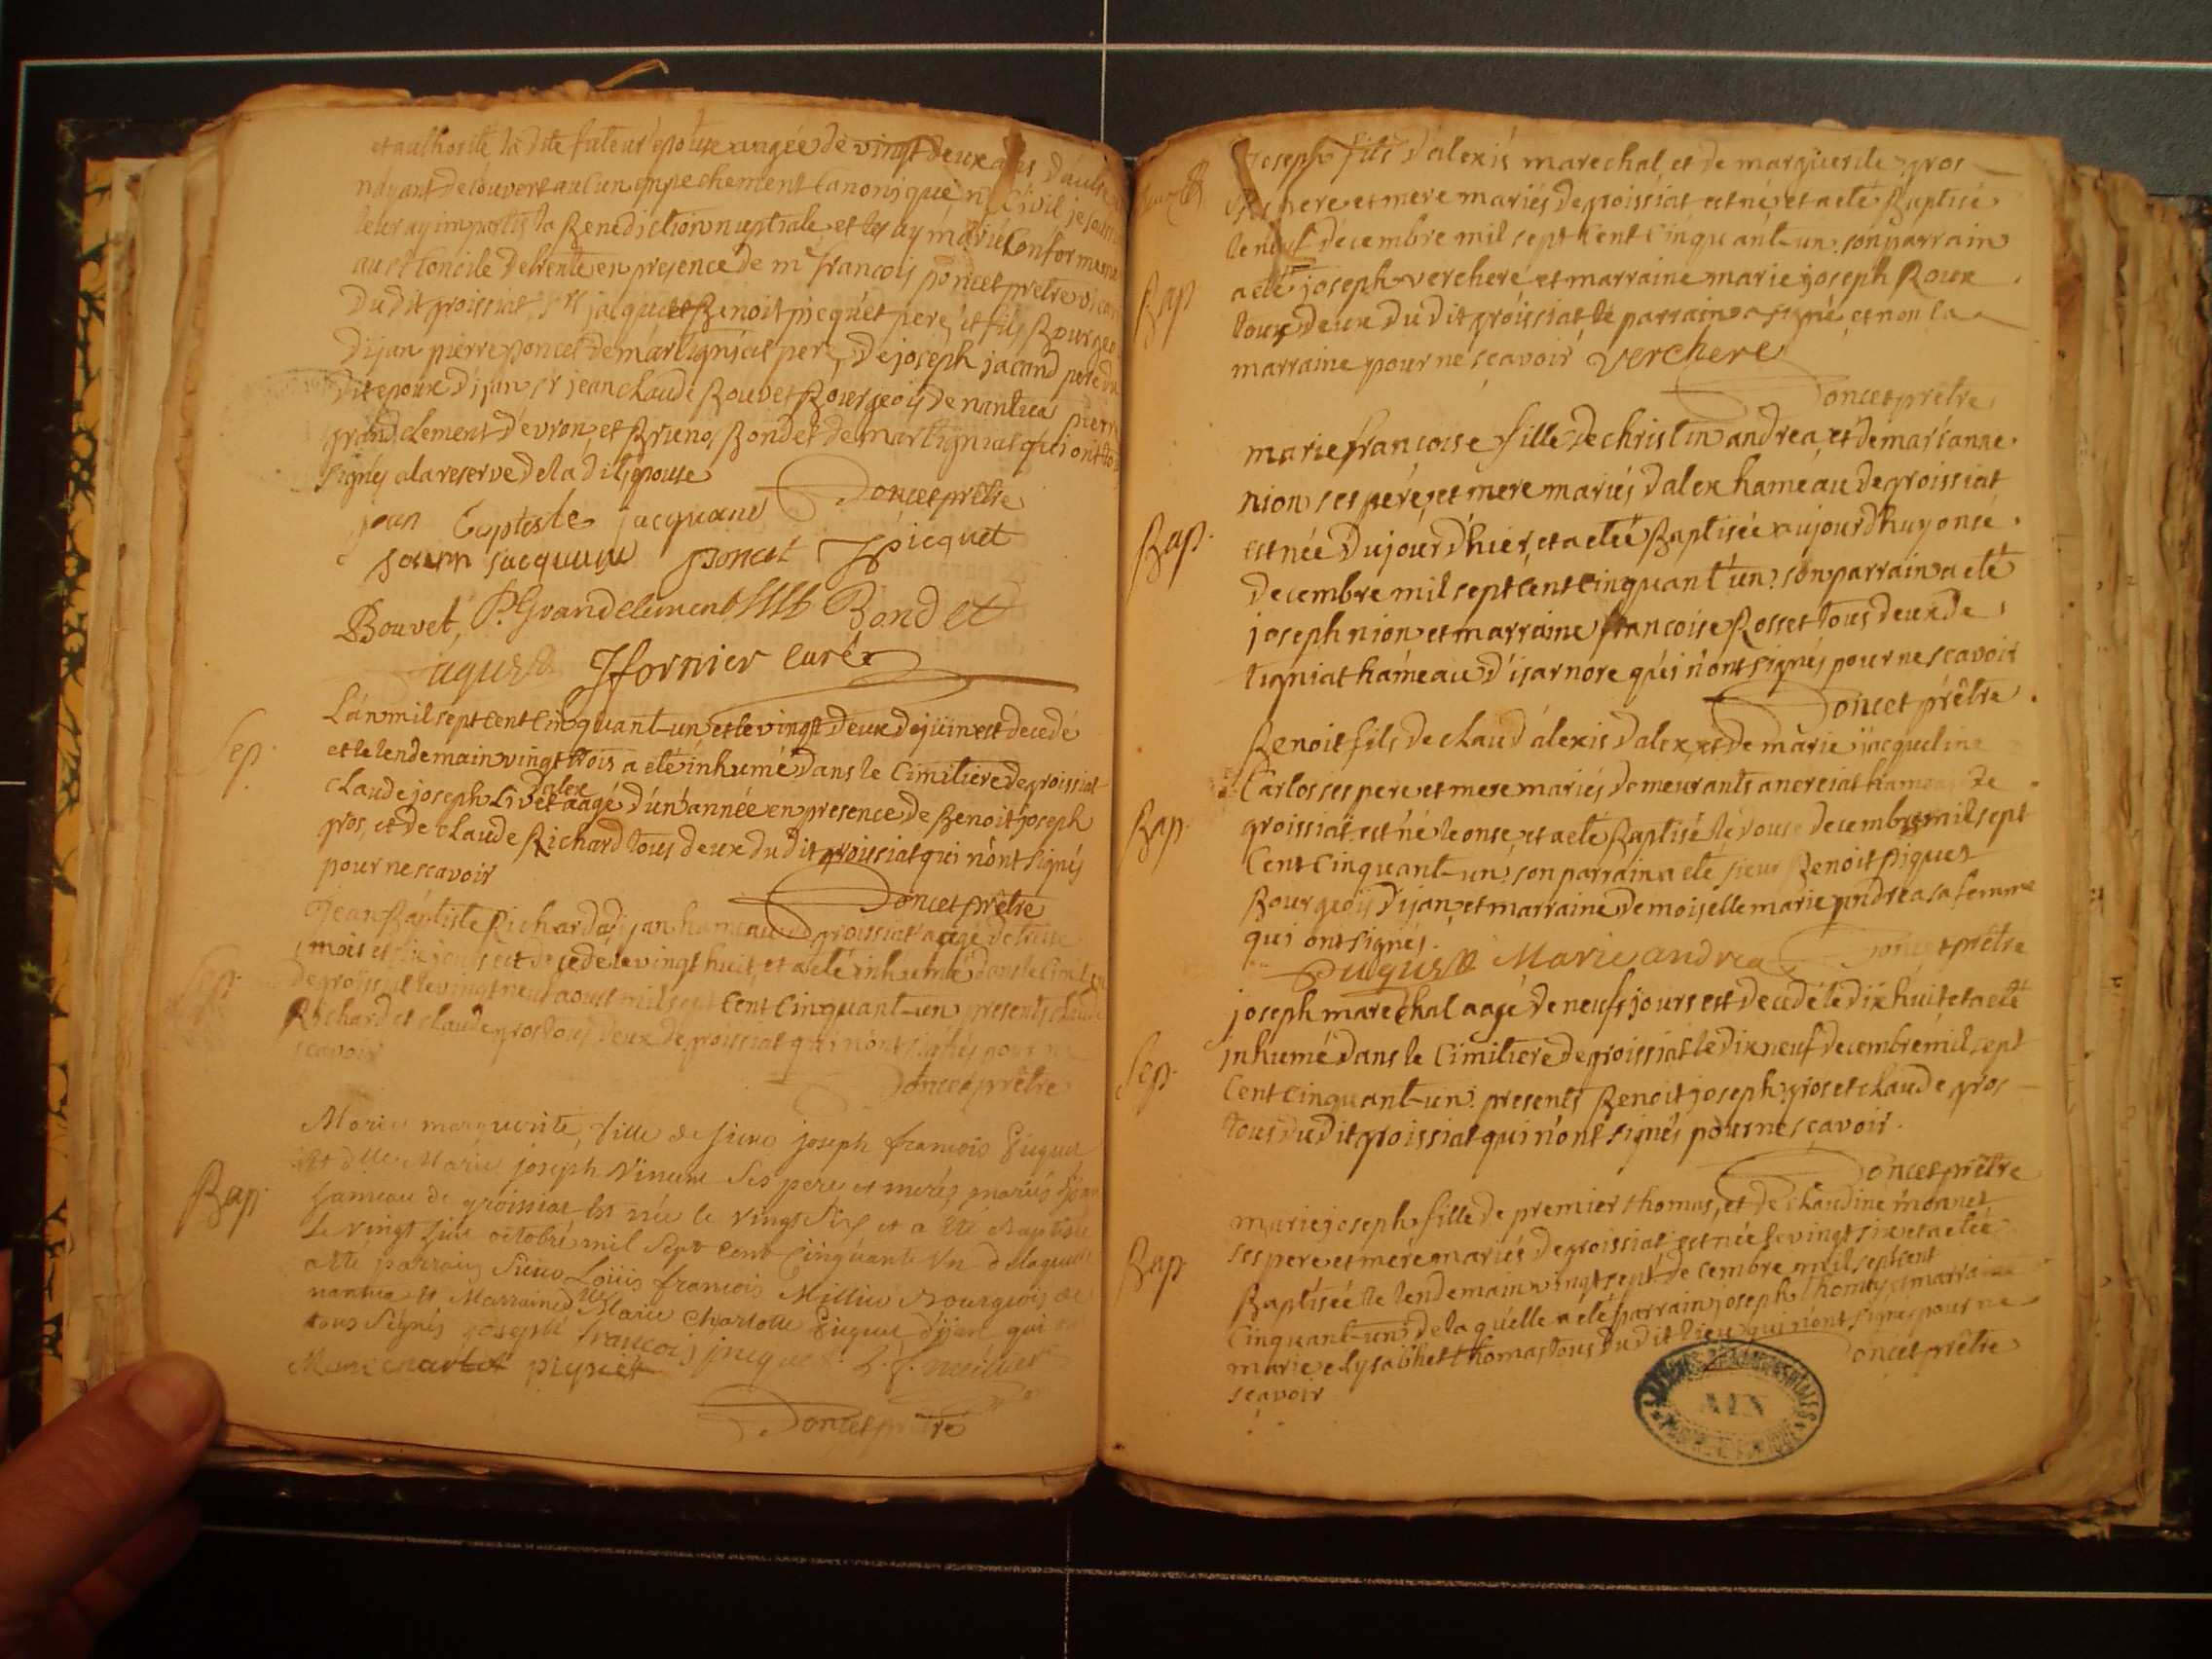 et authorité la dite future epouse aagée de vingt deux ans d'aultre
n'ayant decouvert aulcun empechement canonique ni civil je soussi
leur ay impartis la Benediction nuptiale et les ay marié conformeme
au st concile de trente en presence de mr françois poncet prêtre vicai
du dit groissiat srs jacque et Benoit picquet pere et fils Bourgeo
d'ijan pierre poncet de martigniat pere, de joseph jacand pere du
dit epoux d'ijan sr jean claude Bouvet Bourgeois de nantua pierre
grand clement d'evron et Bruno Bondet de martigniat qui ont to
signés a la reserve de la dite epouse
Poncet prêtre
jean Baptiste jacquand
poncet JPicquet
Bouvet, P. Grandclement Bondet
Jfornier curé
Sep.
L'an mil sept cent cinquant-un et le vingt deux de juin est decedé
et le lendemain vingt trois a eté inhumé dans le cimitiere de groissiat
dalex
claude joseph Livet aagé d'un'année en presence de Benoit joseph
gros, et de claude Richard tous deux du dit groissiat qui n'ont signés
pour ne scavoir
Poncet prêtre
Sep.
Jean Baptiste Richard d'ijan hameau de groissiat aagé de treise
mois et six jours est decedé le vingt huit, et a eté inhumé dans le cimitie
de groissiat le vingt neuf aoust mil sept cent cinquant-un presents claude
Richard et claude gros tous deux de groissiat qui n'ont signés pour ne
scavoir
Poncet prêtre
Bap.
Marie marguerite, fille de sieur joseph françois Piquet
et dlle Marie joseph Vincent ses pere et mere, mariés d'ijan
hameau de groissiat est née le vingt six et a été Baptisée
le vingt huit octobre mil sept cent cinquante un de laquelle
a été parrain sieur Loüis françois Millier Bourgeois de
nantua et Marraine dlle Marie charlotte Piquet d'ijan qui
tous signés joseph françois piquet. L. f. millier
Marie charlot piquet
Poncet prêtre
Joseph fils d'alexis marechal et de marguerite gros
ses pere et mere mariés de groissiat est né et a eté Baptisé
Bap
le neuf decembre mil sept cent cinquant-un son parrain
a eté joseph verchere et marraine marie joseph Roux
tous deux du dit groissiat le parrain a signé et non la
marraine pour ne sçavoir Verchere
Poncet prêtre
Bap.
marie françoise fille de christin andrea, et de marianne
nion ses pere, et mere mariés d'alex hameau de groissiat
est née du jour d'hier, et a eteé Baptisée aujourd'huy onse
decembre mil sept cent cinquant'un son parrain a eté
joseph nion et marraine françoise Rosset tous deux de
tigniat hameau d'isarnore qui n'ont signés pour ne scavoir
Poncet prêtre
Bap.
Benoit fils de claud'alexis dalex, et de marie jacqueline
Carlos ses pere et mere mariés demeurants a nerciat hameau de
groissiat est né le onse, et a eté Baptisé le douse decembre mil sept
cent cinquant-un son parrain a eté sieur Benoit Piquet
Bourgeois d'ijan, et marraine demoiselle marie andrea sa femme
qui ont signés.
Piquet Marie andrea Poncet prêtre
Sep.
joseph marechal aagé de neufs jours est decedé le dix huit et a eté
inhumé dans le cimitiere de groissiat le dix neuf decembre mil sept
cent cinquant-un. presents Benoit joseph gros et claude gros
tous du dit groissiat qui n'ont signés pour ne sçavoir.
Poncet prêtre
Bap.
marie joseph fille de premier thomas, et de claudine monnet
ses pere et mere mariés de groissiat est née le vingt six et a eteé
Baptisée le lendemain vingt sept decembre mil sept cent
cinquant-un de la quelle a eté parrain joseph thomas et marraine
marie elysabhet thomas tous du dit lieu qui n'ont signés pour ne
scavoir
Poncet prêtre
AIN